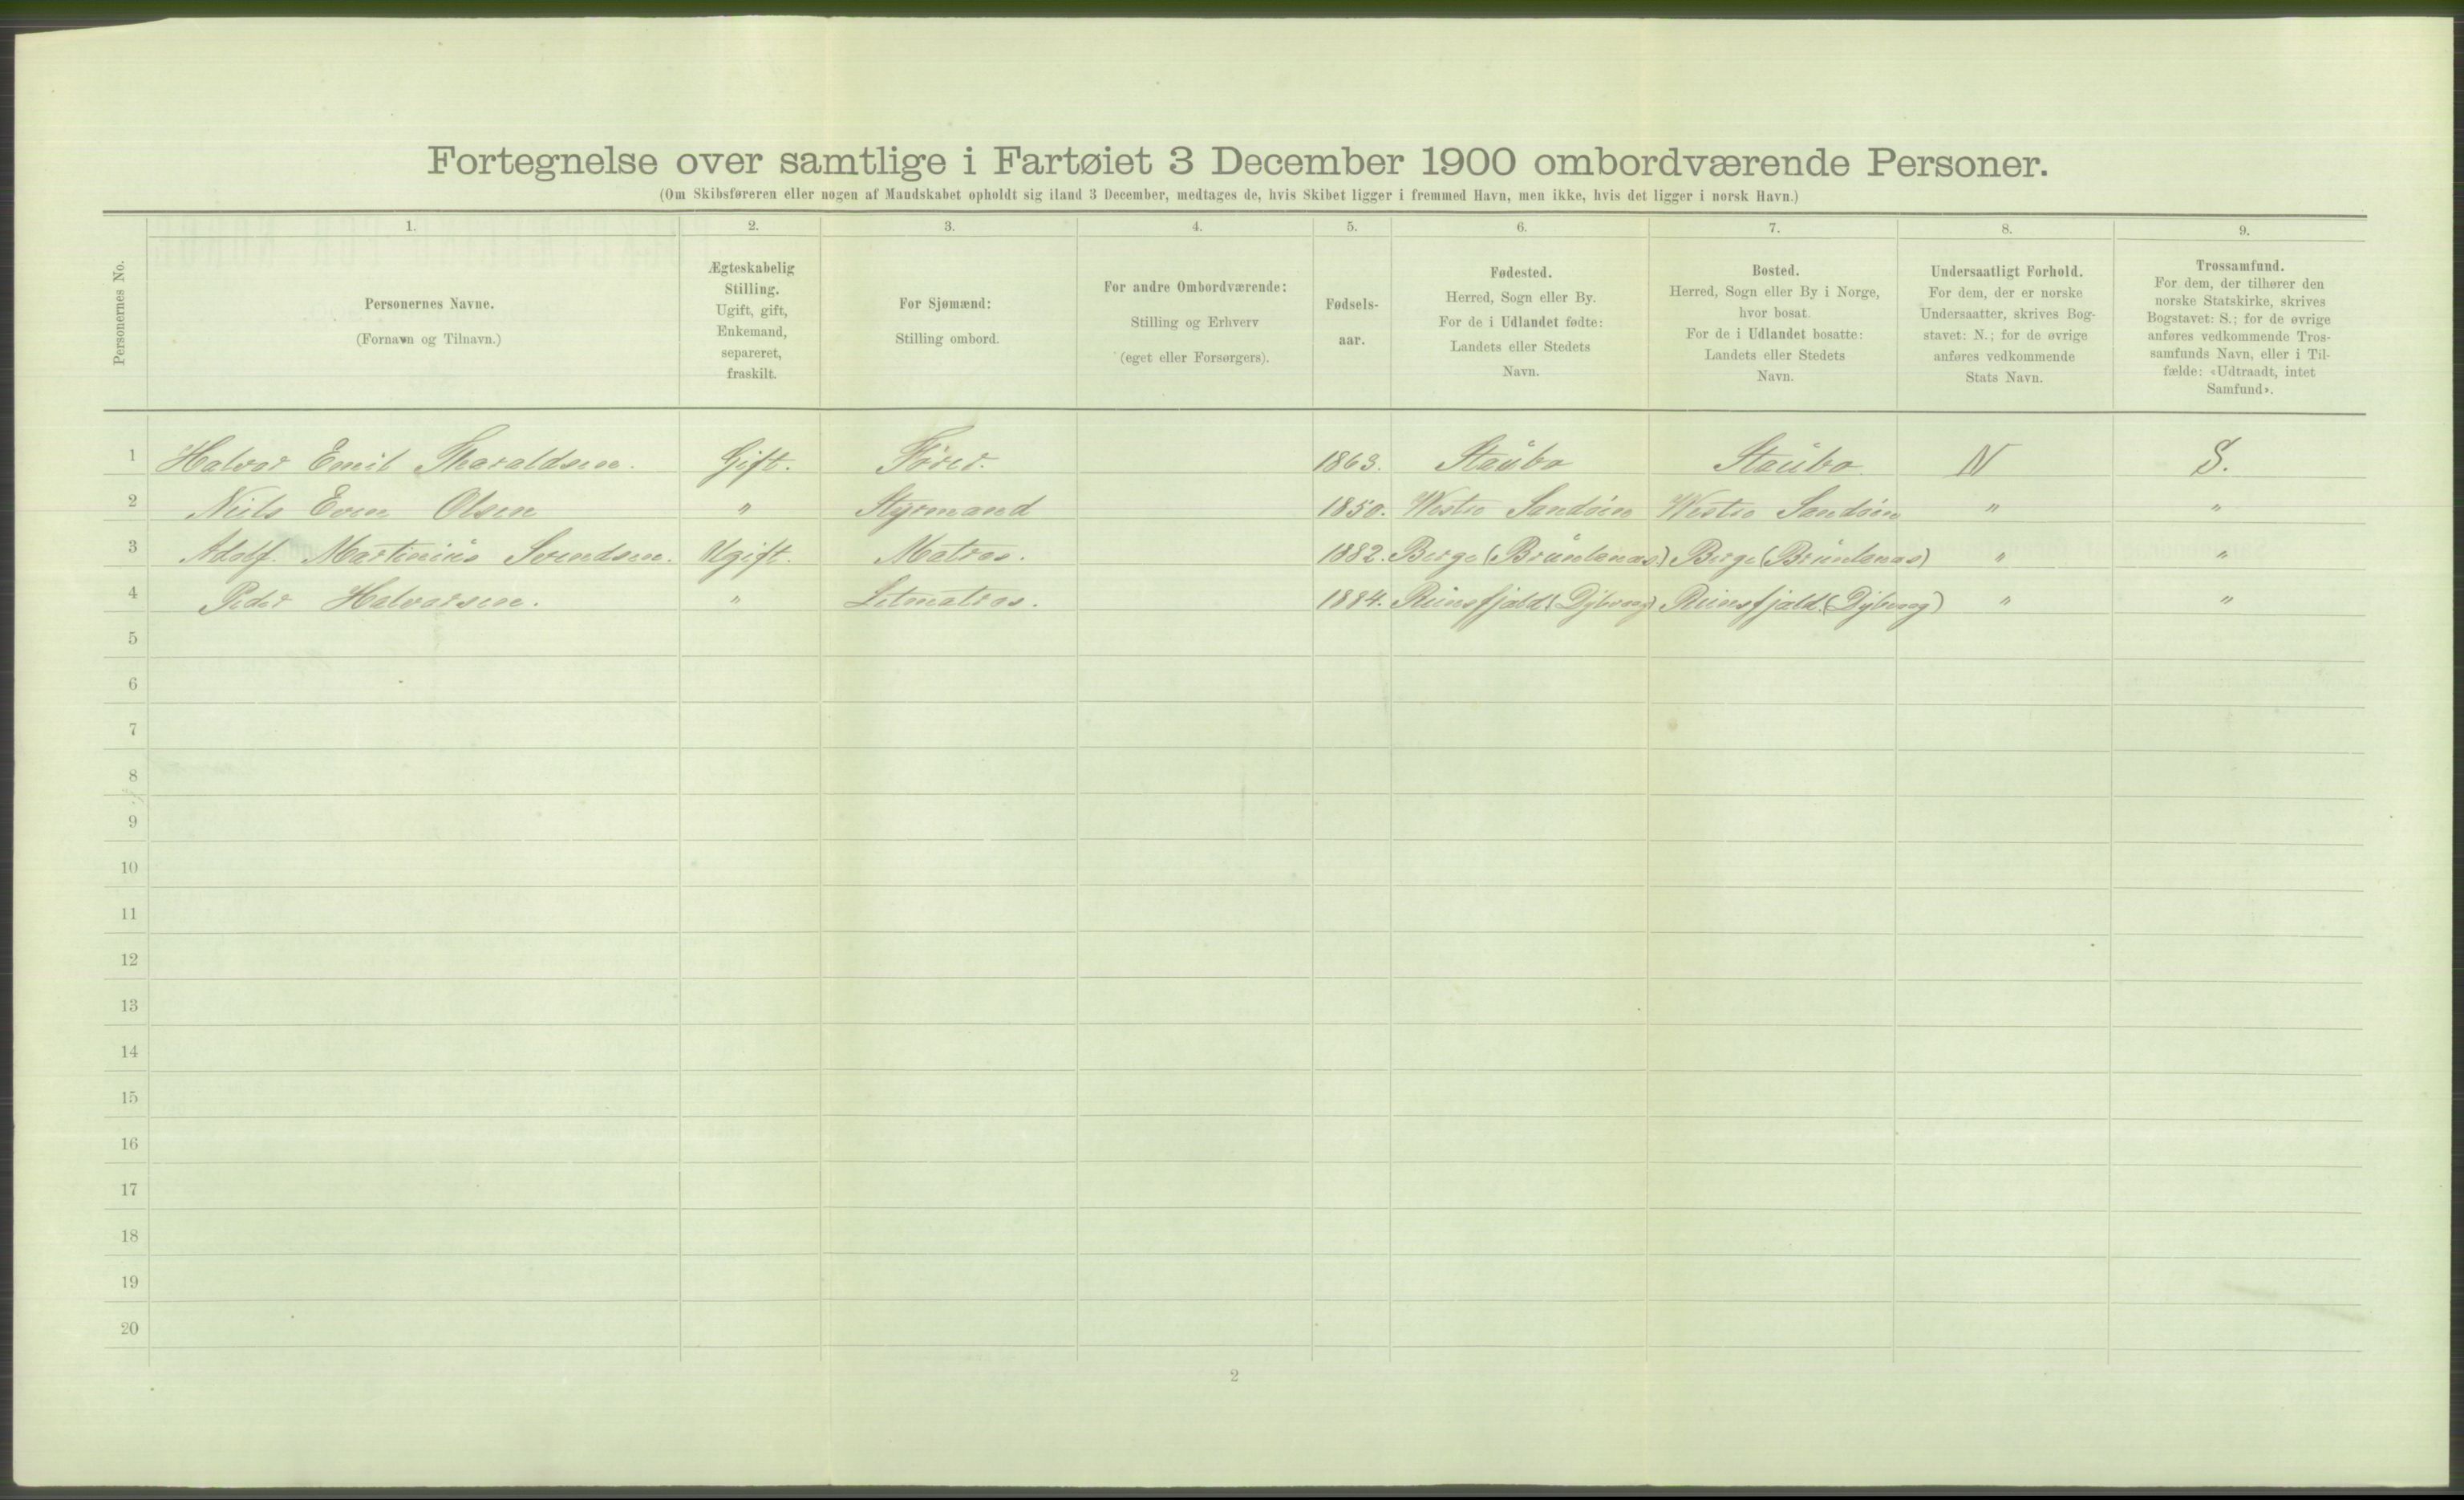 Fortegnelse over samtlige i Fartøiet 3 December 1900 ombordværende Personer.
(Om Skibsføreren eller nogen af Mandskabet opholdt sig iland 3 December, medtages de, hvis Skibet ligger i fremmed Havn, men ikke, hvis det ligger i norsk Havn.)
Personernes No.
1.
Personernes Navne.
(Fornavn og Tilnavn.)
2.
Ægteskabelig
Stilling.
Ugift, gift,
Enkemand,
separeret,
fraskilt.
3.
For Sjømænd:
Stilling ombord.
4.
For andre Ombordværende:
Stilling og Erhverv
(eget eller Forsørgers).
5.
Fødsels-
aar.
6.
Fødested.
Herred, Sogn eller By.
For de i Udlandet fødte:
Landets eller Stedets
Navn.
7.
Bosted.
Herred, Sogn eller By i Norge,
hvor bosat.
For de i Udlandet bosatte:
Landets eller Stedets
Navn.
8.
Undersaatligt Forhold.
For dem, der er norske
Undersaatter, skrives Bog-
stavet: N.; for de øvrige
anføres vedkommende
Stats Navn.
9.
Trossamfund.
For dem, der tilhører den
norske Statskirke, skrives
Bogstavet: S.; for de øvrige
anføres vedkommende Tros-
samfunds Navn, eller i Til-
fælde: «Udtraadt, intet
Samfund».
1 Halvor Emil Tharaldsen. Gift. Fører. 1863. Staübo Staübo N S.
2 Neils Even Olsen " Styrmand 1850. Westre Sandöen Westre Sandöen " "
3 Adolf. Martinius Svendsen. Ugift. Matros. 1882. Berge (Brunlanæs) Berge (Brunlanæs) " "
4 Peder Halvorsen. " Letmatros. 1884. (Dybvaag) (Dybvaag) " "
5
6
7
8
9
10
11
12
13
14
15
16
17
18
19
20
2